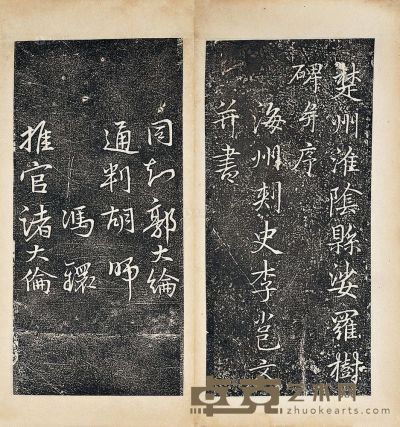 楚州淮陰縣娑羅樹
碑并序
海州刺史李邕文
并書
同知郭大綸
通判胡師
馮鐶
推官諸大倫
卓克艺术网
zhuokearts.com